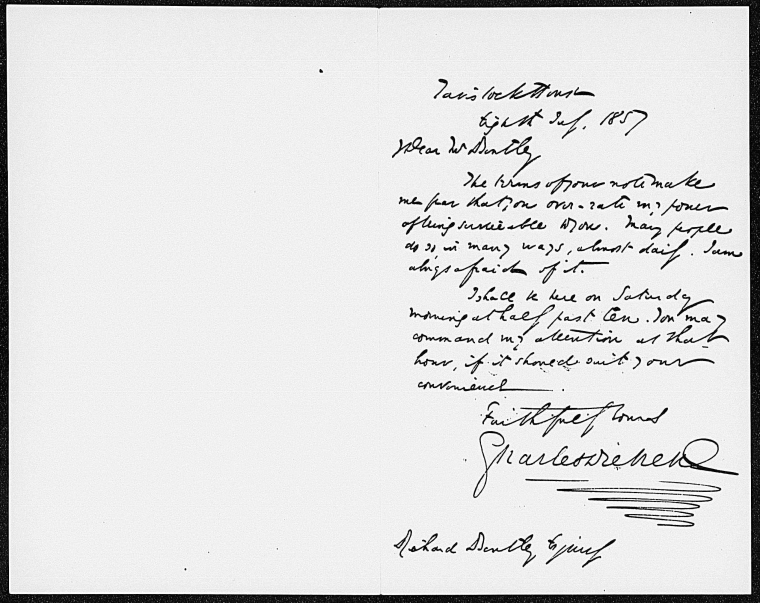 Tavistock House
Eighth July, 1857
Dear Mr Bentley
The terms of your note make
me fear that you over-rate my power
of being serviceable to you. Many people
do so in many ways, almost daily. I am
always afraid of it.
I shall be here on Saturday
morning at half past ten. You may
command my attention at that
hour, if it should suit your
convenience.
Faithfully Yours
Charles Dickens
Richard Bentley Esquire